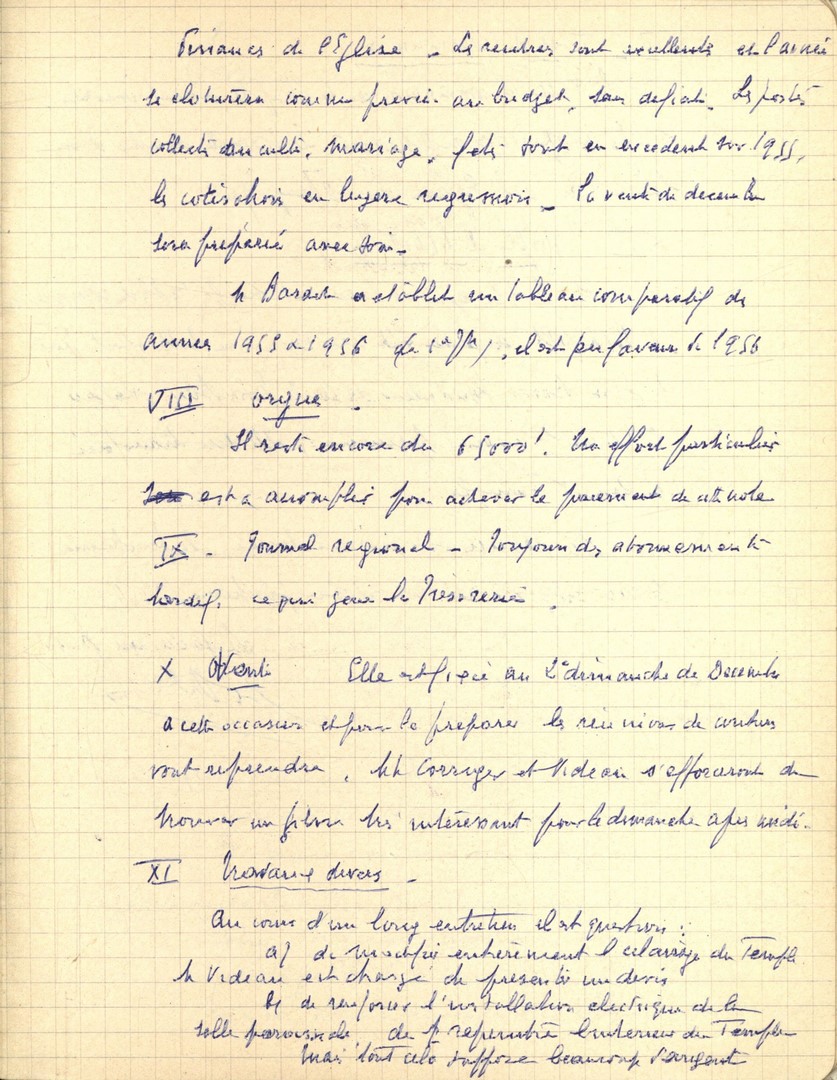 Finances de l'Eglise - Les rentrées sont excellentes et l'année
se cloturera comme prévu au budget, sans deficit. Les postes
collectes du culte, mariage, sont en excedent sur 1955,
les cotisations en legere regression - La vente de decembre
sera préparée avec soin -
M Bardet a établit un tableau comparatif des
années 1955 a 1956 il est en faveur de 1956
VIII orgue.
Il reste encore du 65000f. Un effort particulier
est a accomplir pour achever le paiement de cette note
IX - Journal régional - Toujours des abonnements
tardifs ce qui gene la Trésorerie.
X Vente Elle est fixée au 2e dimanche de Decembre
a cette occasion et pour la preparer les reunions de couture
vont reprendre. MM Corriger et Videau s'efforceront de
trouver un film très intéressant pour le dimanche après midi.
XI Travaux divers -
Au cours d'un long entretien il est question :
a) de modifier entièrement l'eclairage du Temple
M Videau est chargé de presenter un devis
b) de renforcer l'installation electrique de la
salle paroissiale de repeindre l'interieur du Temple
Mais tout cela suppose beaucoup d'argent